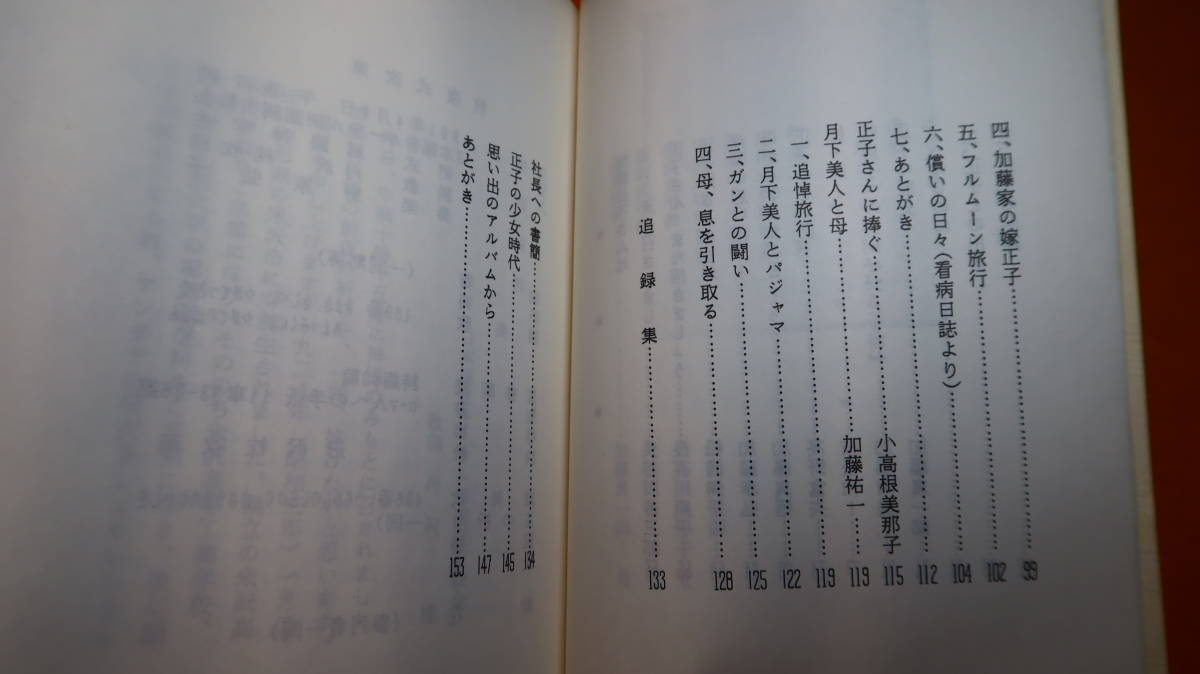 四、加藤家の嫁正子……………99
五、フルムーン旅行……………102
六、償いの日々（看病日誌より）……………104
七、あとがき……………112
正子さんに捧ぐ……………小高根美那子 115
月下美人と母……………加藤祐一……119
一、追悼旅行……………119
二、月下美人とパジャマ……………122
三、ガンとの闘い……………125
四、母、息を引き取る……………128
追録集……………133
社長への書簡……………134
正子の少女時代……………145
思い出のアルバムから……………147
あとがき……………153